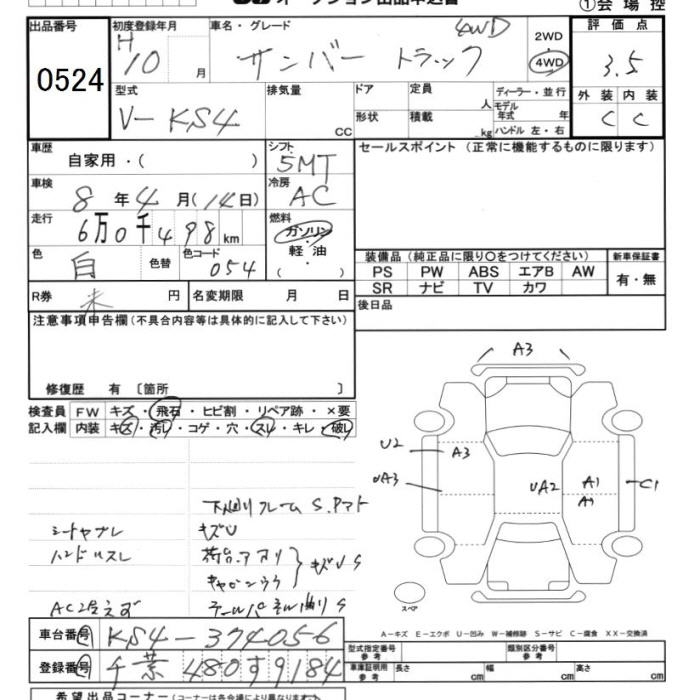 オークション出品申込書
①会場控
出品番号 0524
初度登録年月 H10 月
車名・グレード サンバートラック 4WD
2WD
4WD
評価点 3.5
外装 内装
C C
型式 V-KS4
排気量 CC
ドア
形状
定員 人
積載 kg
ディーラー・並行
モデル年式 年
ハンドル 左・右
車歴 自家用・( )
シフト 5MT
セールスポイント (正常に機能するものに限ります)
車検 8年4月(14日)
冷房 AC
走行 6万0千498km
燃料 ガソリン・軽油・( )
色 白 色替 色コード 054
装備品 (純正品に限り○をつけてください)
新車保証書
PS PW ABS エアB AW
SR ナビ TV カワ
有・無
R券 未 円 名変期限 月 日
後日品
注意事項申告欄(不具合内容等は具体的に記入して下さい)
修復歴 有 〔箇所 〕
検査員記入欄
FW キズ・飛石・ヒビ割・リペア跡・×要
内装 キズ・汚れ・コゲ・穴・スレ・キレ・破れ
下廻りフレーム S.Pマト
シートヤブレ キズU
ハンドルスレ 荷台.アオリ
キャビンウラ
キズUS
AC冷えず テールパネル曲りS
A3
U2
A3
UA3
UA2
A1
A1
C1
スペア
A-キズ E-エクボ U-凹み W-補修跡 S-サビ C-腐食 XX-交換済
車台番号 KS4-374056
登録番号 千葉480す9184
型式指定番号 参考
類別区分番号 参考
車庫証明用 参考 長さ cm 幅 cm 高さ cm
希望出品コーナー(コーナーは各会場により異なります)